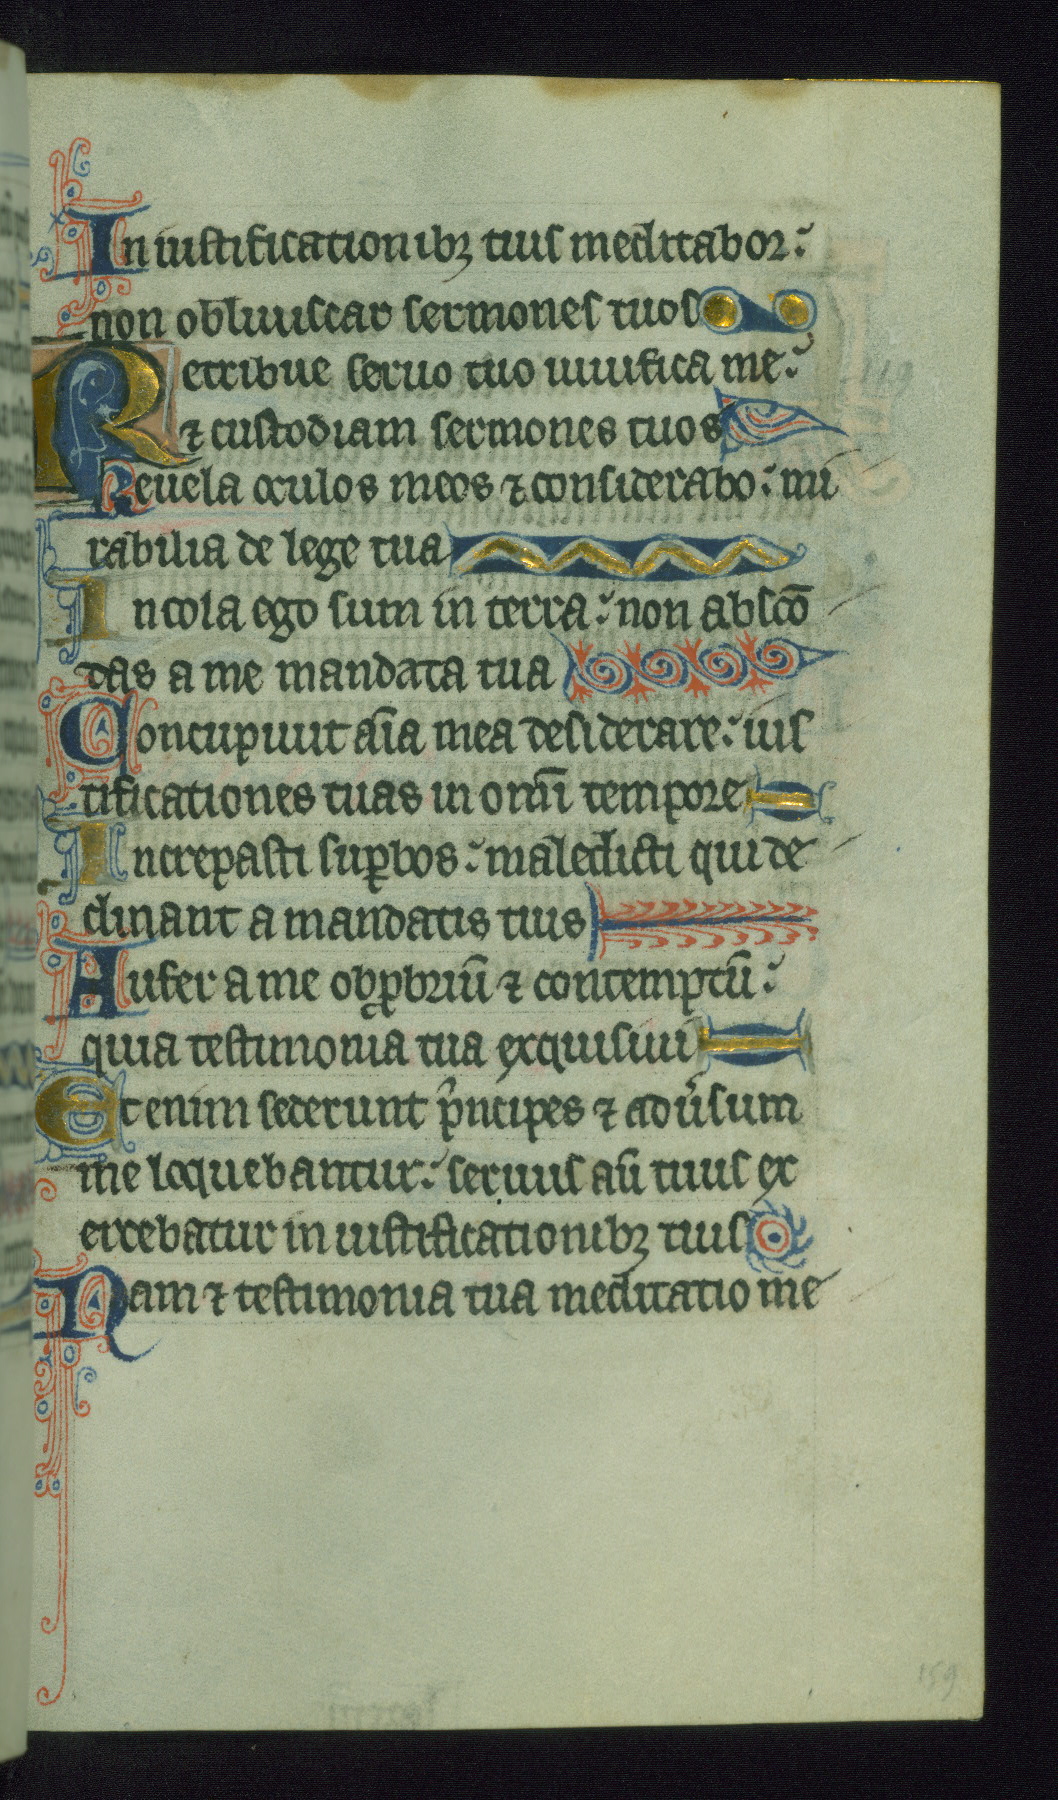 In iustificationibꝫ tuis meditabor:
non obliuiscar sermones tuos
Retribue seruo tuo uiuifica me:
⁊ custodiam sermones tuos
Reuela oculos meos ⁊ considerabo: mi
rabilia de lege tua
Incola ego sum in terra: non abscō
das a me mandata tua
Concupiuit aīa mea desiderare: ius
tificationes tuas in omī tempore
Increpasti suꝑbos: maledicti qui de
clinant a mandatis tuis
Aufer a me obꝓbriū ⁊ contemptū:
quia testimonia tua exquisiui
Etenim sederunt pⁱncipes ⁊ adūsum
me loquebantur: seruus aū tuus ex
ercebatur in iustificationibꝫ tuis
Nam ⁊ testimonia tua meditatio me
159